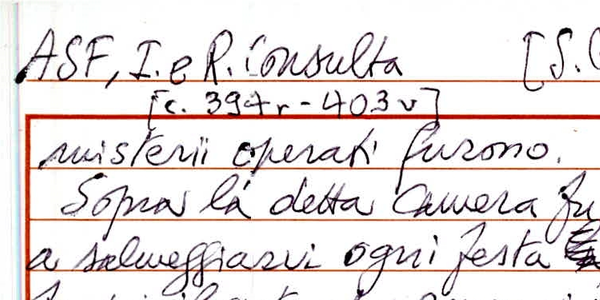 ASF, I. e R. Consulta [S.
[c. 394r - 403v]
misterii operati furono.
Sopra la detta Camera fu
a salmeggiarvi ogni festa